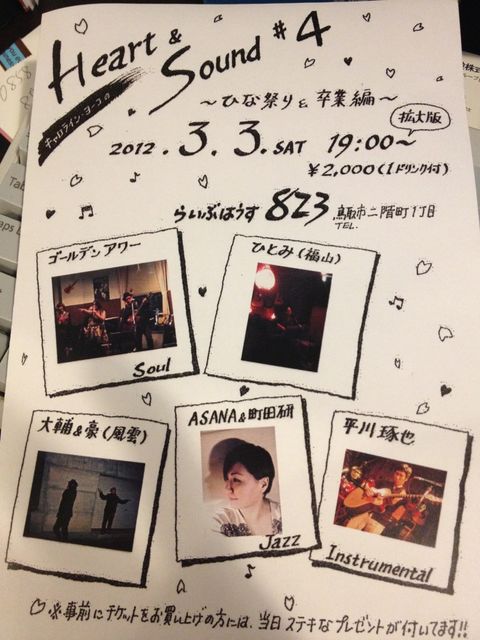 Heart & Sound #4
キャロライン・ヨーコの
～ひな祭り&卒業編～
拡大版
2012.3.3.SAT 19:00～
¥2,000(1ドリンク付)
らいぶはうす 823 鳥取市二階町1丁目
TEL.
ゴールデンアワー
Soul
ひとみ(福山)
大輔&豪(風雲)
ASANA&町田研
Jazz
平川琢也
Instrumental
※事前にチケットをお買い上げの方には、当日ステキなプレゼントが付いてます!!